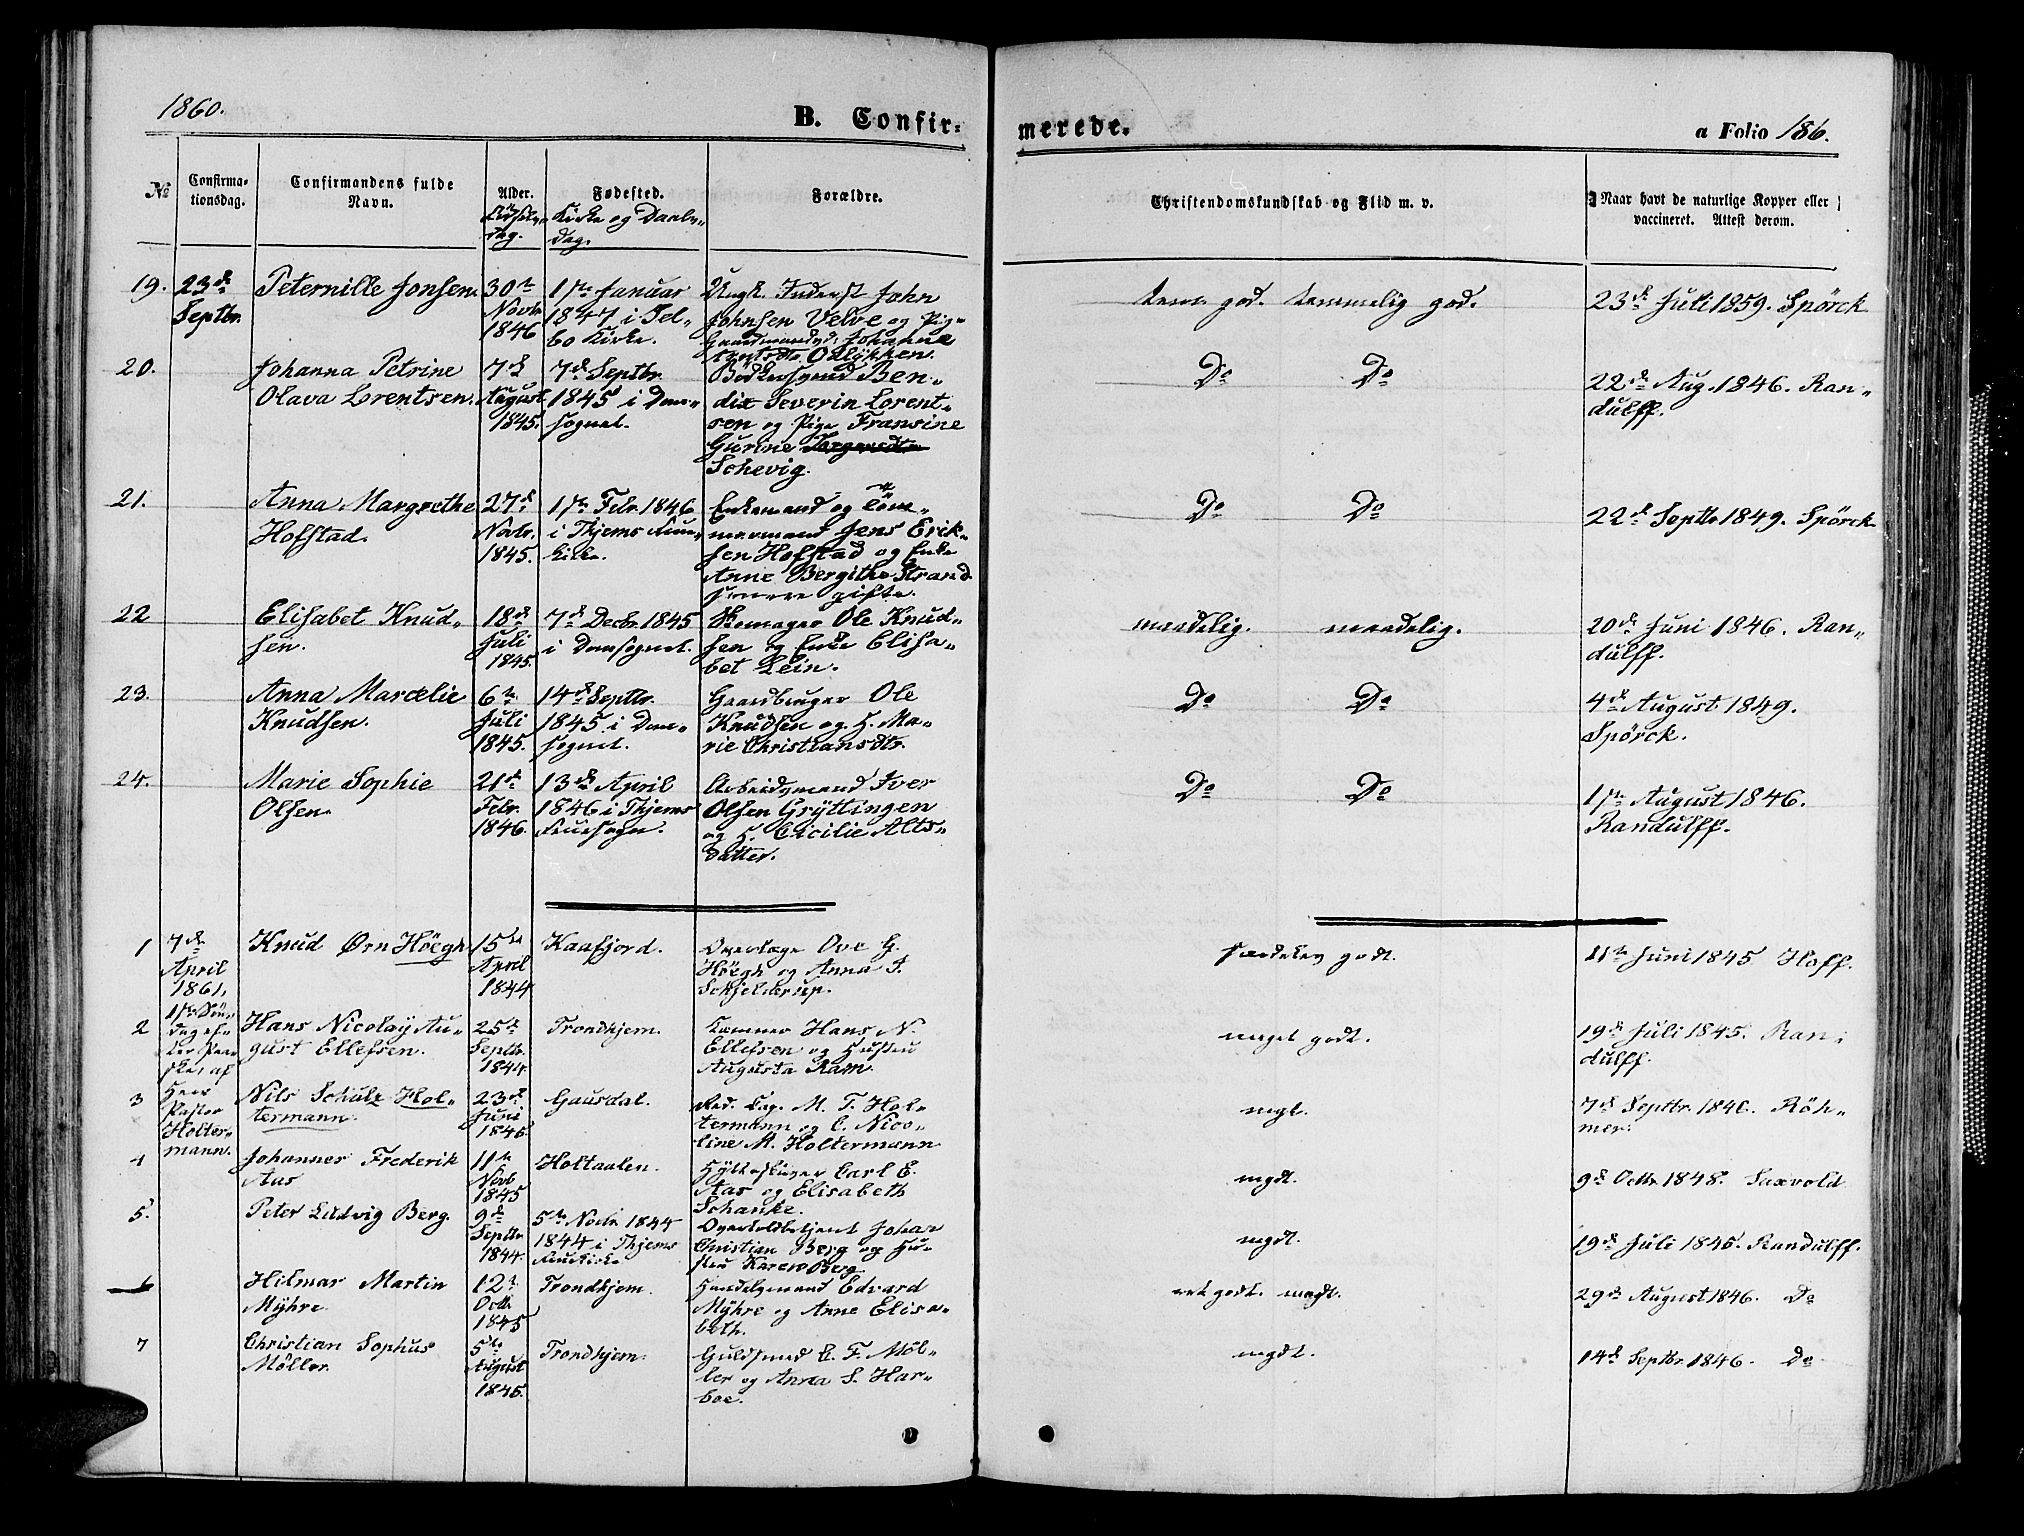 1860.
B. Confir-
merede.
a Folio 186.
No
Confirma-
tionsdag.
Confirmandens fulde
Navn.
Alder.
Fødselsdag.
Fødested.
Kirke og Daabs-
dag.
Forældre.
Christendomskundskab og Flid m. v.
Naar havt de naturlige Kopper eller
vaccineret. Attest derom.
19.
23de
Septbr.
Peternille Jonsen
30te
Novbr
1846
1ste Januar
1847 i Sel-
bo Kirke.
Ungk. Inderst John
Johnsen Velve og Pig.
Gaardmandsd. Johanne
Oxlykken.
temt god. temmelig god.
23de Juli 1859. Spörck
20.
Johanna Petrine
Olava Lorentsen.
7de
August
1845.
7de Septbr.
1845 i Dom-
sognet.
Bödkersvend Ben-
dix Severin Lorent-
sen og Pige Fransine
Gurine
Schevig.
Do Do
22de Aug. 1846. Ran-
dulff.
21.
Anna Margrethe
Hofstad.
27de
Novbr.
1845.
1ste Febr 1846
i Thjems Frue-
kirke.
Enkemand og Töm-
mermand Jens Erik-
sen Hofstad og Enke
Anne Bergithe Strand
senere gifte.
Do Do
22de Septbr 1849. Spörck
22
Elisabet Knud-
sen.
18de
Juli
1845.
7de Decbr 1845
i Domsognet.
Skomager Ole Knud-
sen og Enke Elisa-
bet Lein.
maadelig. maadelig.
20de Juni 1846. Ran-
dulff.
23.
Anna Marcelie
Knudsen.
6te
Juli
1845.
14de Septbr.
1845 i Dom-
sognet.
Gaardbruger Ole
Knudsen og H. Ma-
rie Christiansdtr.
Do Do
4de August 1849.
Spörck.
24.
Marie Sophie
Olsen.
21de
Febr.
1846.
13de April
1846 i Thjems
Fruesogn.
Arbeidsmand Iver
Olsen Gryttingen
og H. Cicilie Alts-
datter.
Do Do
1ste August 1846.
Randulff.
1
7de
April
1861,
1ste Søn-
dag ef-
ter Paa-
ske, af
Herr
Pastor
Holter-
mann.
Knud Ørn Höegh
15de
April
1844
Kaafjord.
Overlæge Ove G.
Höegh og Anna J.
Schjelderup.
særdeles godt.
11te Juni 1845 Hoff.
2
Hans Nicolay Au-
gust Ellefsen.
25te
Septbr.
1844
Trondhjem.
Kæmner Hans N.
Ellefsen og Hustru
Augusta Ram.
meget godt.
19de Juli 1845. Ran-
dulff.
3
Nils Schulz Hol-
termann.
23de
Juni
1846
Gausdal.
Red. Cap. M. T. Hol-
termann og C. Nico-
line M. Holtermann
mgt.
7de Septbr. 1846. Röh-
mer.
4
Johannes Frederik
Aas
11te
Novb
1845
Holtaalen.
Hytteskriver Carl E.
Aas og Elisabeth
Schanke.
mgdt.
9de Octbr. 1848. Saxvold
5.
Peter Ludvig Berg.
9de
Septbr
1844.
5te Novbr. 1844
1844 i Thjems
Fruekirke
Overtoldbetjent Johan
Christian Berg og Hu-
stru Karen Berg
mgdt.
19de Juli 1845. Randulff.
6
Hilmar Martin
Myhre.
12te
Octb.
1845
Trondhjem.
Handelsmand Edvard
Myhre og Anne Elisa-
beth.
ret godt. megt.
29de August 1846. Do
7
Christian Sophus
Møller.
5te
August
1845.
Trondhjem.
Guldsmed C. F. Møl-
ler og Anna S. Har-
boe.
mgdt.
14de Septbr 1846. Do